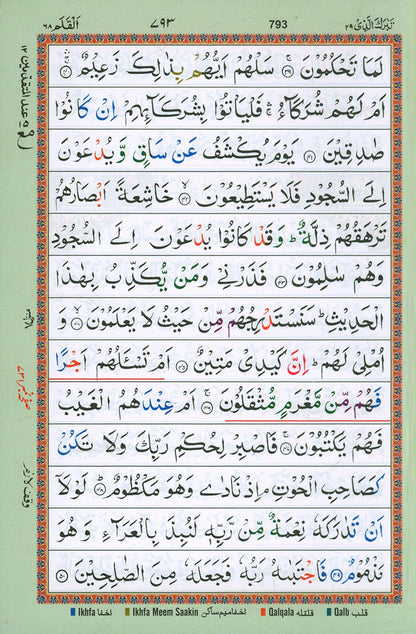 تَبٰرَكَ الَّذِیْ ٢٩
793
٧٩٣
اَلْقَلَم ٦٨
لَمَا تَحْكُمُوْنَ ۝٣٩ سَلْهُمْ اَيُّهُمْ بِذٰلِكَ زَعِيْمٌ ۝٤٠
اَمْ لَهُمْ شُرَكَآءُ ۚ فَلْيَاْتُوْا بِشُرَكَآئِهِمْ اِنْ كَانُوْا
صٰدِقِيْنَ ۝٤١ يَوْمَ يُكْشَفُ عَنْ سَاقٍ وَّيُدْعَوْنَ
اِلَى السُّجُوْدِ فَلَا يَسْتَطِيْعُوْنَ ۝٤٢ خَاشِعَةً اَبْصَارُهُمْ
تَرْهَقُهُمْ ذِلَّةٌ ؕ وَقَدْ كَانُوْا يُدْعَوْنَ اِلَى السُّجُوْدِ
وَهُمْ سٰلِمُوْنَ ۝٤٣ فَذَرْنِيْ وَمَنْ يُّكَذِّبُ بِهٰذَا
الْحَدِيْثِ ؕ سَنَسْتَدْرِجُهُمْ مِّنْ حَيْثُ لَا يَعْلَمُوْنَ ۝٤٤ وَ
اُمْلِيْ لَهُمْ ؕ اِنَّ كَيْدِيْ مَتِيْنٌ ۝٤٥ اَمْ تَسْـَٔلُهُمْ اَجْرًا
فَهُمْ مِّنْ مَّغْرَمٍ مُّثْقَلُوْنَ ۝٤٦ اَمْ عِنْدَهُمُ الْغَيْبُ
فَهُمْ يَكْتُبُوْنَ ۝٤٧ فَاصْبِرْ لِحُكْمِ رَبِّكَ وَلَا تَكُنْ
كَصَاحِبِ الْحُوْتِ ۘ اِذْ نَادٰى وَهُوَ مَكْظُوْمٌ ۝٤٨ لَوْلَاۤ
اَنْ تَدٰرَكَهٗ نِعْمَةٌ مِّنْ رَّبِّهٖ لَنُبِذَ بِالْعَرَآءِ وَهُوَ
مَذْمُوْمٌ ۝٤٩ فَاجْتَبٰىهُ رَبُّهٗ فَجَعَلَهٗ مِنَ الصّٰلِحِيْنَ ۝٥٠
Ikhfa اخفا
Ikhfa Meem Saakin اخفا میم ساکن
Qalqala قلقلہ
Qalb قلب